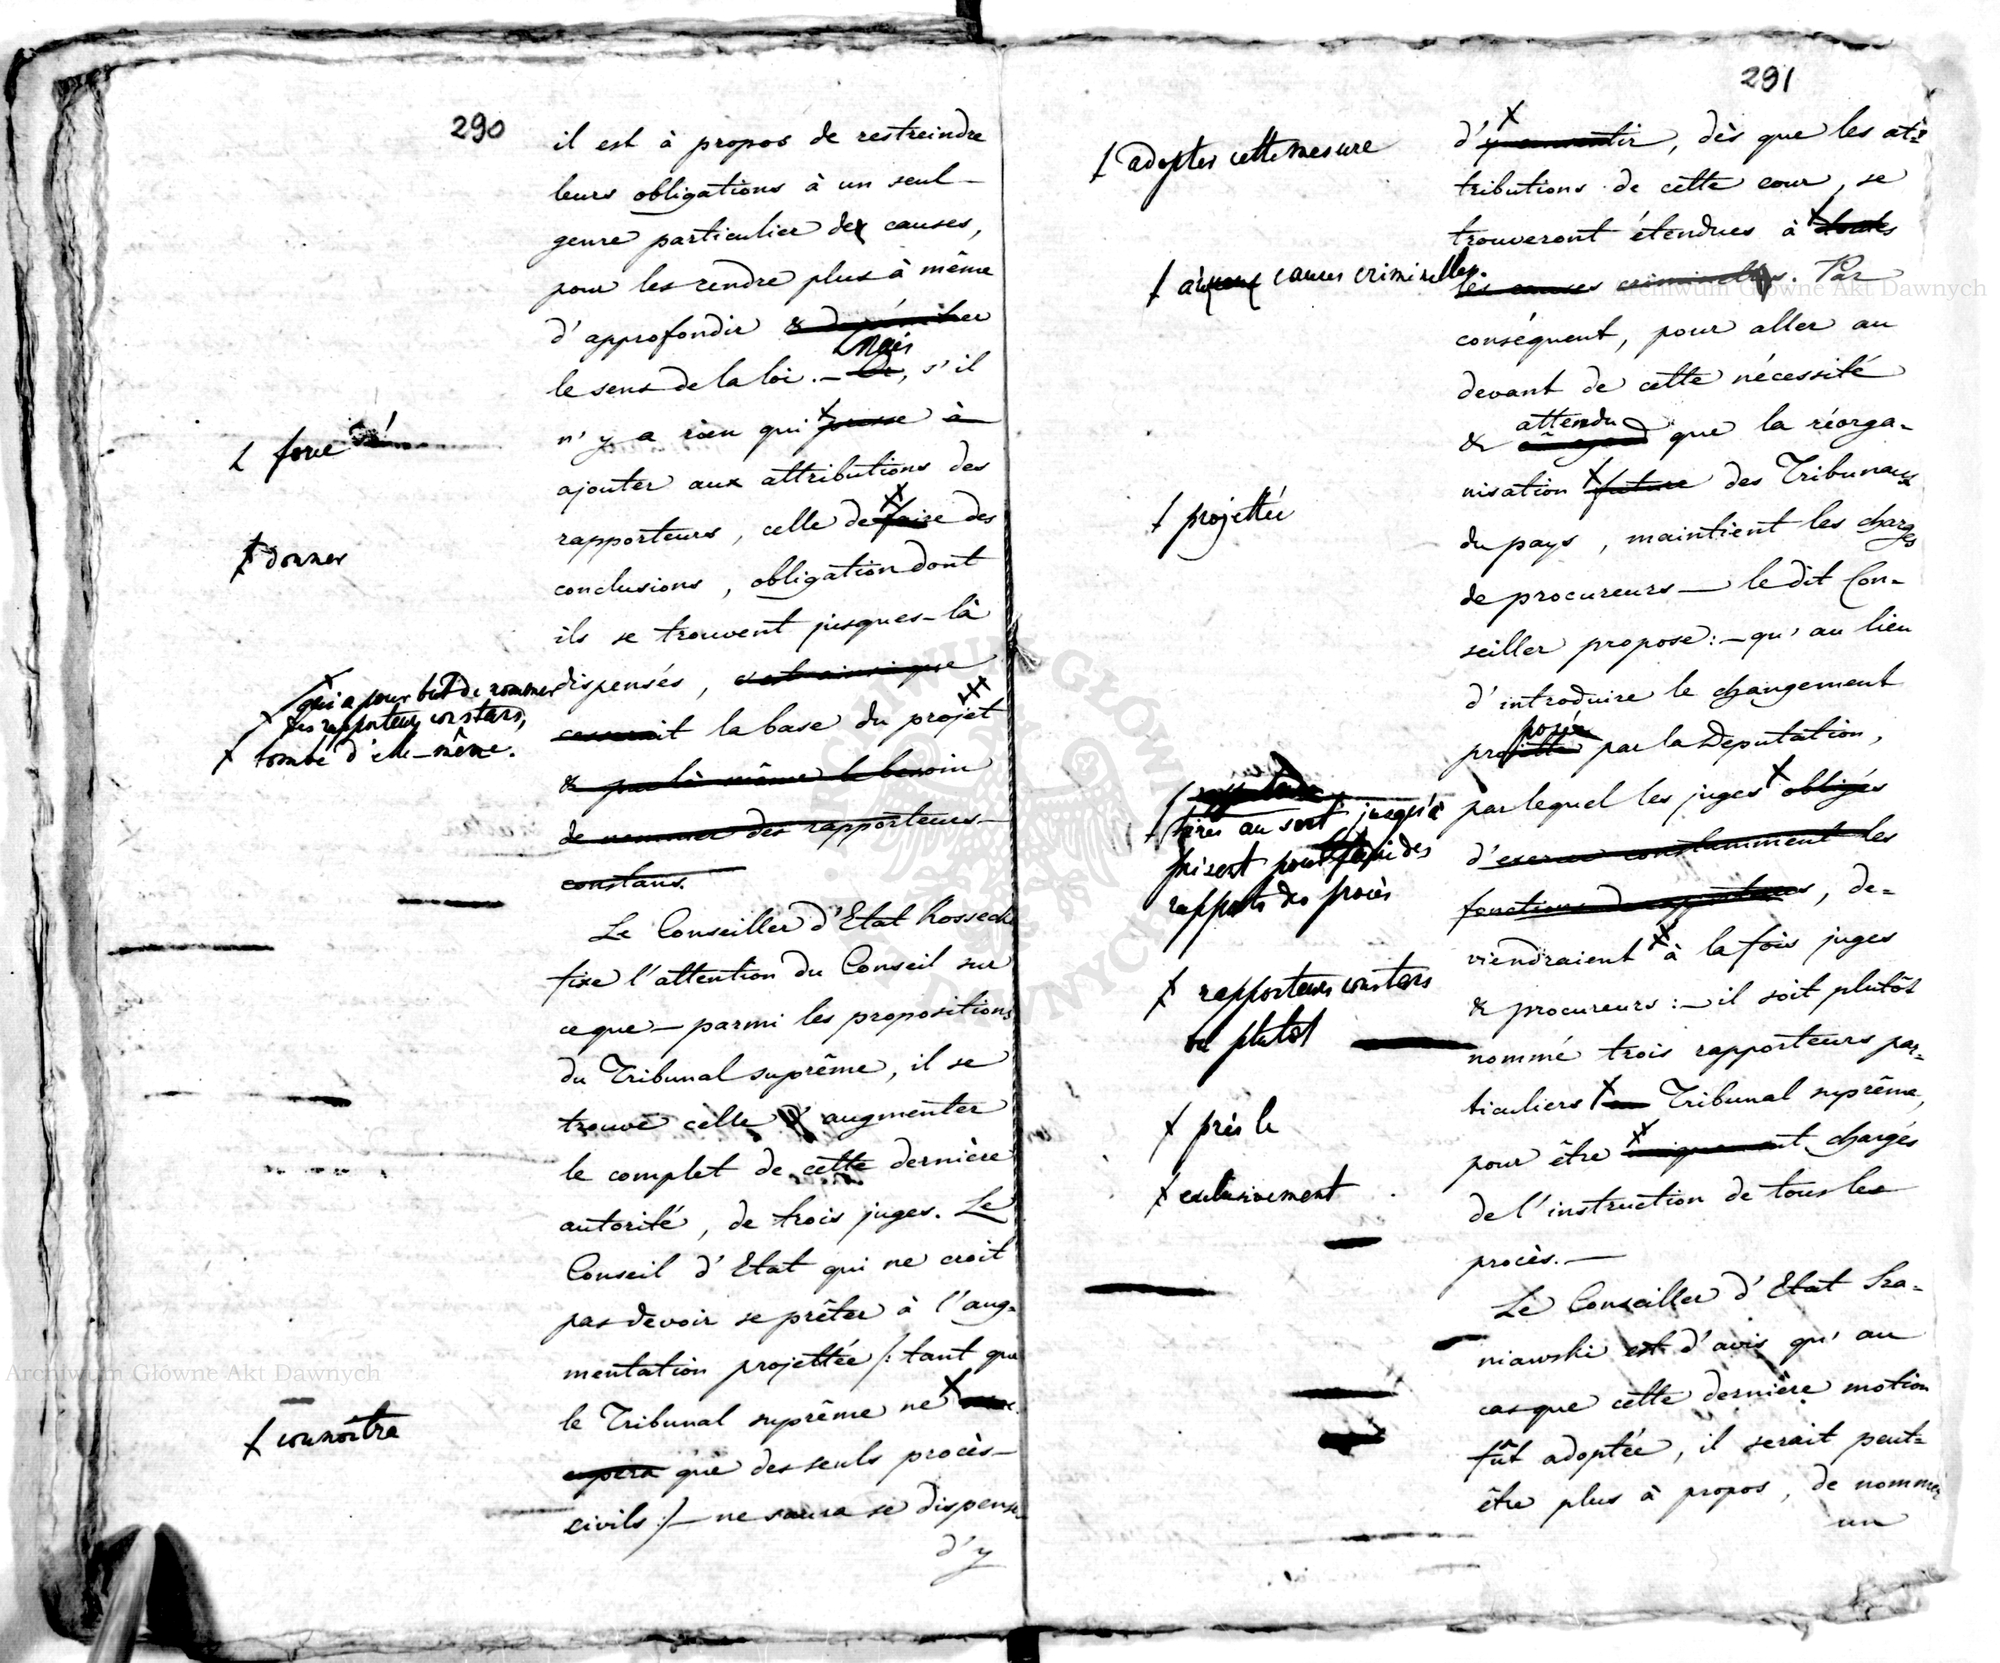 290
il est à propos de restreindre
leurs obligations à un seul
genre particulier de causes,
pour les rendre plus à même
d'approfondir &
le sens de la loi. — Or, s'il
mais
n'y a rien qui à
ajouter aux attributions des
rapporteurs, celle de faire des
conclusions, obligation dont
ils se trouvent jusques-là
dispensés, c'est ainsi que
cesserait la base du projet
& par là même le besoin
de nommer des rapporteurs
constans.
Le Conseiller d'Etat Kossecki
fixe l'attention du Conseil sur
ce que — parmi les propositions
du Tribunal suprême, il se
trouve celle d'augmenter
le complet de cette dernière
autorité, de trois juges. Le
Conseil d'Etat qui ne croit
pas devoir se prêter à l'aug-
mentation projettée /: tant que
le Tribunal suprême ne
que des seuls procès
civils :/ — ne saura se dispenser
d'y
force
donner
qui a pour but de nommer
des rapporteurs constans,
tombe d'elle-même.
connoitra
291
d'y consentir, dès que les at-
tributions de cette cour, se
trouveront étendues à toutes
les causes criminelles. Par
conséquent, pour aller au
devant de cette nécessité
& que la réorga-
attendu
nisation future des Tribunaux
du pays, maintient les charges
de procureurs — le dit Con-
seiller propose: — qu'au lieu
d'introduire le changement
projetté par la Deputation,
posé
par lequel les juges obligés
d'exercer constamment les
fonctions de rapporteurs, de-
viendraient à la fois juges
& procureurs: — il soit plutôt
nommé trois rapporteurs par-
ticuliers au Tribunal suprême,
pour être uniquement chargés
de l'instruction de tous les
procès. —
Le Conseiller d'Etat Sza-
niawski est d'avis qu'au
cas que cette dernière motion
fût adoptée, il serait peut-
être plus à propos, de nommer
un
adopter cette mesure
causes criminelles.
projettée
tirés au sort jusqu'à
présent pour
rapports des procès
rapporteurs constans
ou plutôt
près le
exclusivement
Archiwum Główne Akt Dawnych
Archiwum Główne Akt Dawnych